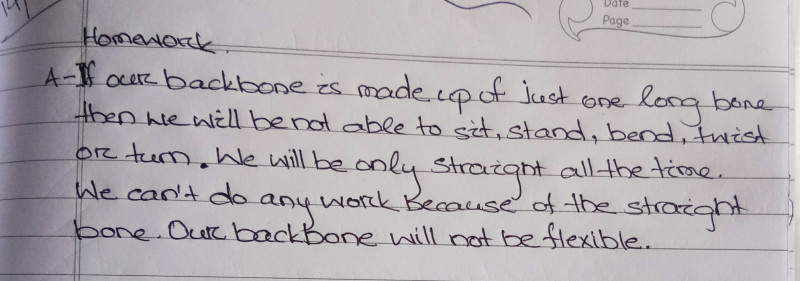 14)
Date
Page
Homework.
A- If our backbone is made up of just one long bone
then we will be not able to sit, stand, bend, twist
or turn. We will be only straight all the time.
We can't do any work because of the straight
bone. Our backbone will not be flexible.